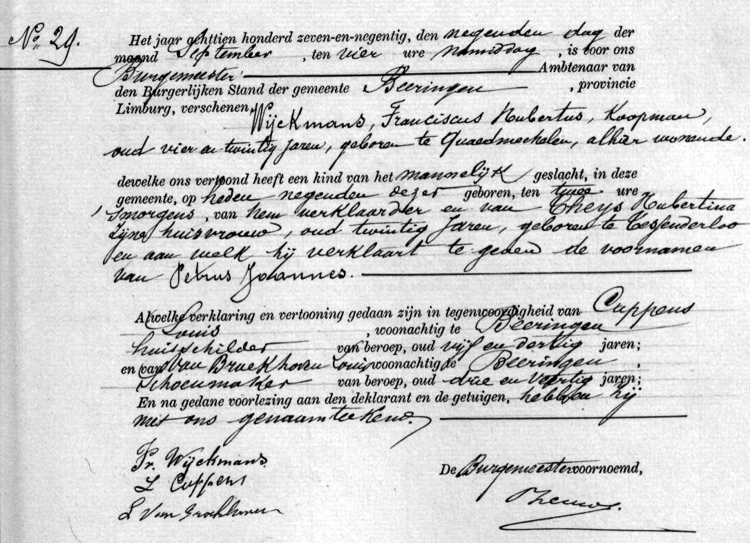 No 29.
Het jaar achttien honderd zeven-en-negentig, den negenden dag der
maand September, ten vier ure namiddag, is voor ons
Burgemeester Ambtenaar van
den Burgerlijken Stand der gemeente Beeringen, provincie
Limburg, verschenen
Wijckmans, Franciscus Hubertus, Koopman,
oud vier en twintig jaren, geboren te Quaedmechelen, alhier wonende.
dewelke ons vertoond heeft een kind van het mannelijk geslacht, in deze
gemeente, op heden negenden dezer geboren, ten twee ure
's morgens, van hem verklaarder en van Theys Hubertina
zijne huisvrouw, oud twintig jaren, geboren te Tessenderloo
en aan welk hij verklaart te geven de voornamen
van Petrus Joannes.
Alwelke verklaring en vertooning gedaan zijn in tegenwoordigheid van Cuppens
Louis, woonachtig te Beeringen
huisschilder van beroep, oud vijf en dertig jaren;
en van Van Broekhoven Louis woonachtig te Beeringen,
Schoenmaker van beroep, oud drie en veertig jaren;
En na gedane voorlezing aan den deklarant en de getuigen, hebben zij
met ons genaamteekend.
Fr. Wijckmans
L Cuppens
L Van
De Burgemeester voornoemd,